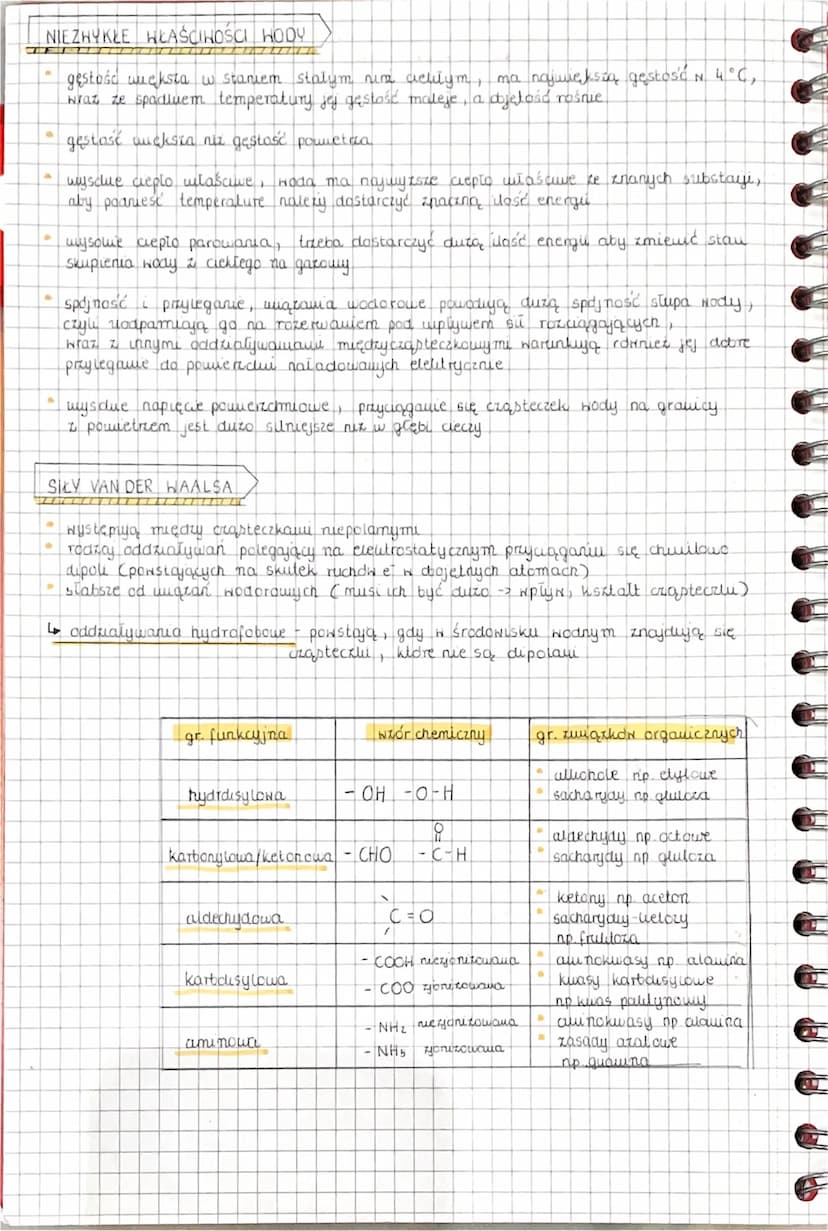 NIEZWYKŁE WŁAŚCIWOŚCI WODY
• gęstość większa w staniem stałym niż ciekłym, ma największą gęstość w 4°C,
wraz ze spadkiem temperatury jej gęstość maleje, a objętość rośnie
• gęstość większa niż gęstość powietrza
• wysokie ciepło właściwe, woda ma najwyższe ciepło właściwe ze znanych substacji,
aby podnieść temperature należy dostarczyć znaczną ilość energii
• wysokie ciepło parowania, trzeba dostarczyć dużą ilość energii aby zmienić stan
skupienia wody z ciekłego na gazowy
• spójność i przyleganie, wiązania wodorowe powodują dużą spójność słupa wody,
czyli uodparniają go na rozerwaniem pod wpływem sił rozciągających,
wraz z innymi oddziaływaniami międzycząsteczkowymi warunkują również jej dobre
przyleganie do powierzchni naładowanych elektrycznie
• wysokie napięcie powierzchniowe, przyciąganie się cząsteczek wody na granicy
z powietrzem jest dużo silniejsze niż w głębi cieczy
SIŁY VAN DER WAALSA
• występują między cząsteczkami niepolarnymi
• rodzaj oddziaływań polegający na elektrostatycznym przyciąganiu się chwilowo
dipoli (powstających na skutek ruchów e⁻ w obojętnych atomach)
• słabsze od wiązań wodorowych (musi ich być dużo -> wpływ, kształt cząsteczki)
↳ oddziaływania hydrofobowe - powstają, gdy w środowisku wodnym znajdują się
cząsteczki, które nie są dipolami
gr. funkcyjna wzór chemiczny gr. związków organicznych
hydroksylowa - OH -O-H • alkohole np. etylowe
• sacharydy np. glukoza
karbonylowa/ketonowa - CHO O
||
-C-H • aldechydy np. octowe
• sacharydy np. glukoza
aldechydowa \
C=O
/ • ketony np. aceton
• sacharydy-ketozy
np. fruktoza
karboksylowa - COOH niezjonizowana • aminokwasy np. alanina
- COO zjonizowana • kwasy karboksylowe
np kwas palitynowy
aminowa - NH₂ niezjonizowana • aminokwasy np alanina
- NH₃ zjonizowana • zasady azotowe
np. guanina